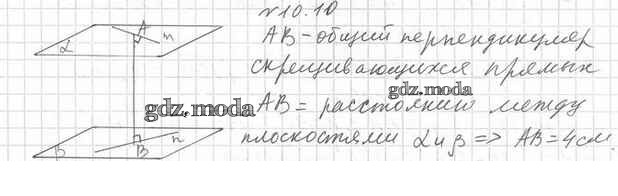 №10.10
A
m
α
AB - общий перпендикуляр
скрещивающихся прямых
gdz.moda
gdz.moda
AB = расстоянию между
плоскостями α и β => AB = 4 см.
β
B
n